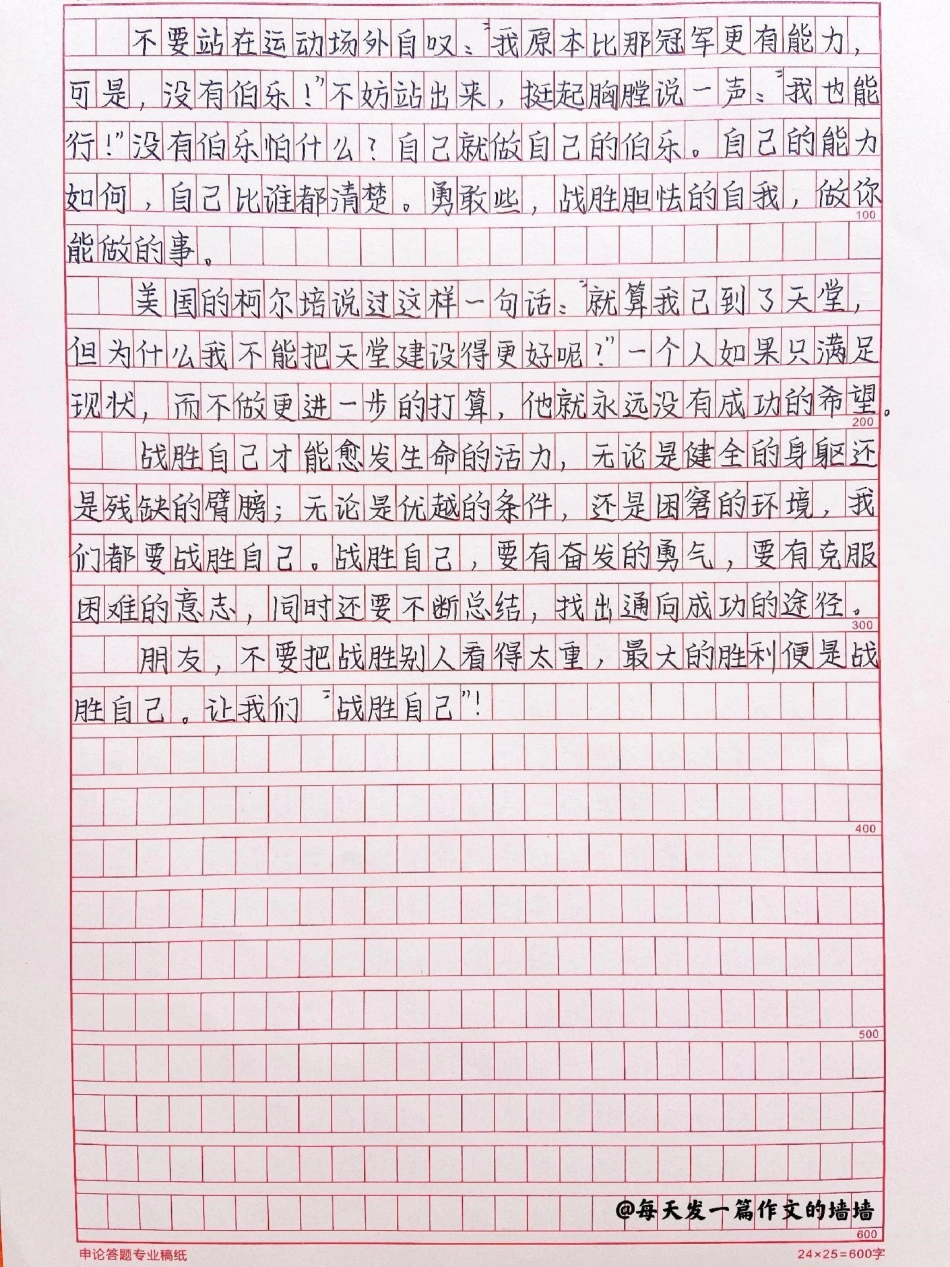 不要站在运动场外自叹：“我原本比那冠军更有能力，
可是，没有伯乐！”不妨站出来，挺起胸膛说一声：“我也能
行！”没有伯乐怕什么？自己就做自己的伯乐。自己的能力
如何，自己比谁都清楚。勇敢些，战胜胆怯的自我，做你
100
能做的事。
美国的柯尔培说过这样一句话：“就算我已到了天堂，
但为什么我不能把天堂建设得更好呢？”一个人如果只满足
现状，而不做更进一步的打算，他就永远没有成功的希望。
200
战胜自己才能愈发生命的活力，无论是健全的身躯还
是残缺的臂膀；无论是优越的条件，还是困窘的环境，我
们都要战胜自己。战胜自己，要有奋发的勇气，要有克服
困难的意志，同时还要不断总结，找出通向成功的途径。
300
朋友，不要把战胜别人看得太重，最大的胜利便是战
胜自己。让我们“战胜自己”！
400
500
@每天发一篇作文的墙墙
600
申论答题专业稿纸
24×25=600字